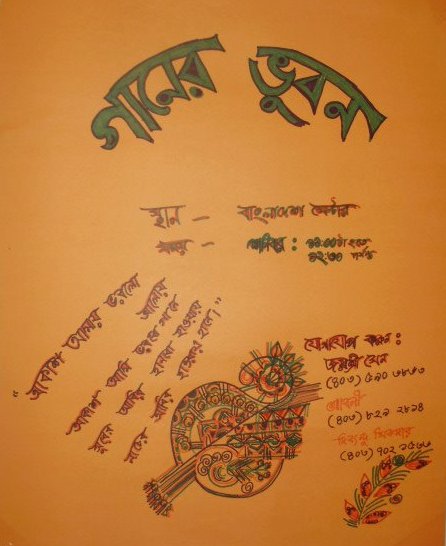 গানের ভুবন
স্থান - বাংলাদেশ সেন্টার
সময় - শনিবার : ১১:০০টা হতে
১২:৩০ পর্যন্ত
"আকাশ আমায় ভরলো আলোয়
আকাশ আমি ভরব গানে
সুরের আবীর হানব হাওয়ায়
নাচের আবীর হাওয়ায় হানে।"
যোগাযোগ করুন :
জয়শ্রী সেন
(৪০৩) ৫৯০ ৩৮৬৩
শ্রাবনী
(৪০৩) ৮২৯ ২৮১৪
হিমাদ্রি শিকদার
(৪০৩) ৭০২ ১৫৬৬